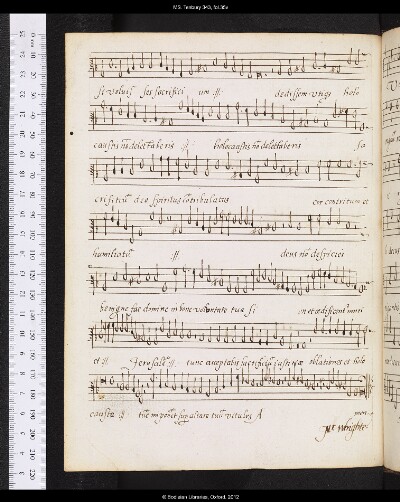 MS. Tenbury 343, fol.35v
si voluiss sos sacrifici um :||: dedissem vtiqz holo
caustis nō delectaberis :||: holocaustis nō delectaberis sa
crificiū deo spiritus cōtribulatus cor contritum et
humiliatū :||: deus nō despicies
benigne fac domine in bone voluntate tua si on et ædificent muri
et :||: Jerusalē :||: tunc acceptabis sacrificiū iustitiæ oblationes et holo
causta :||: tūc imponēt sup altare tuū vitulos A
men
Mr Wrighte
© Bodleian Libraries, Oxford, 2012